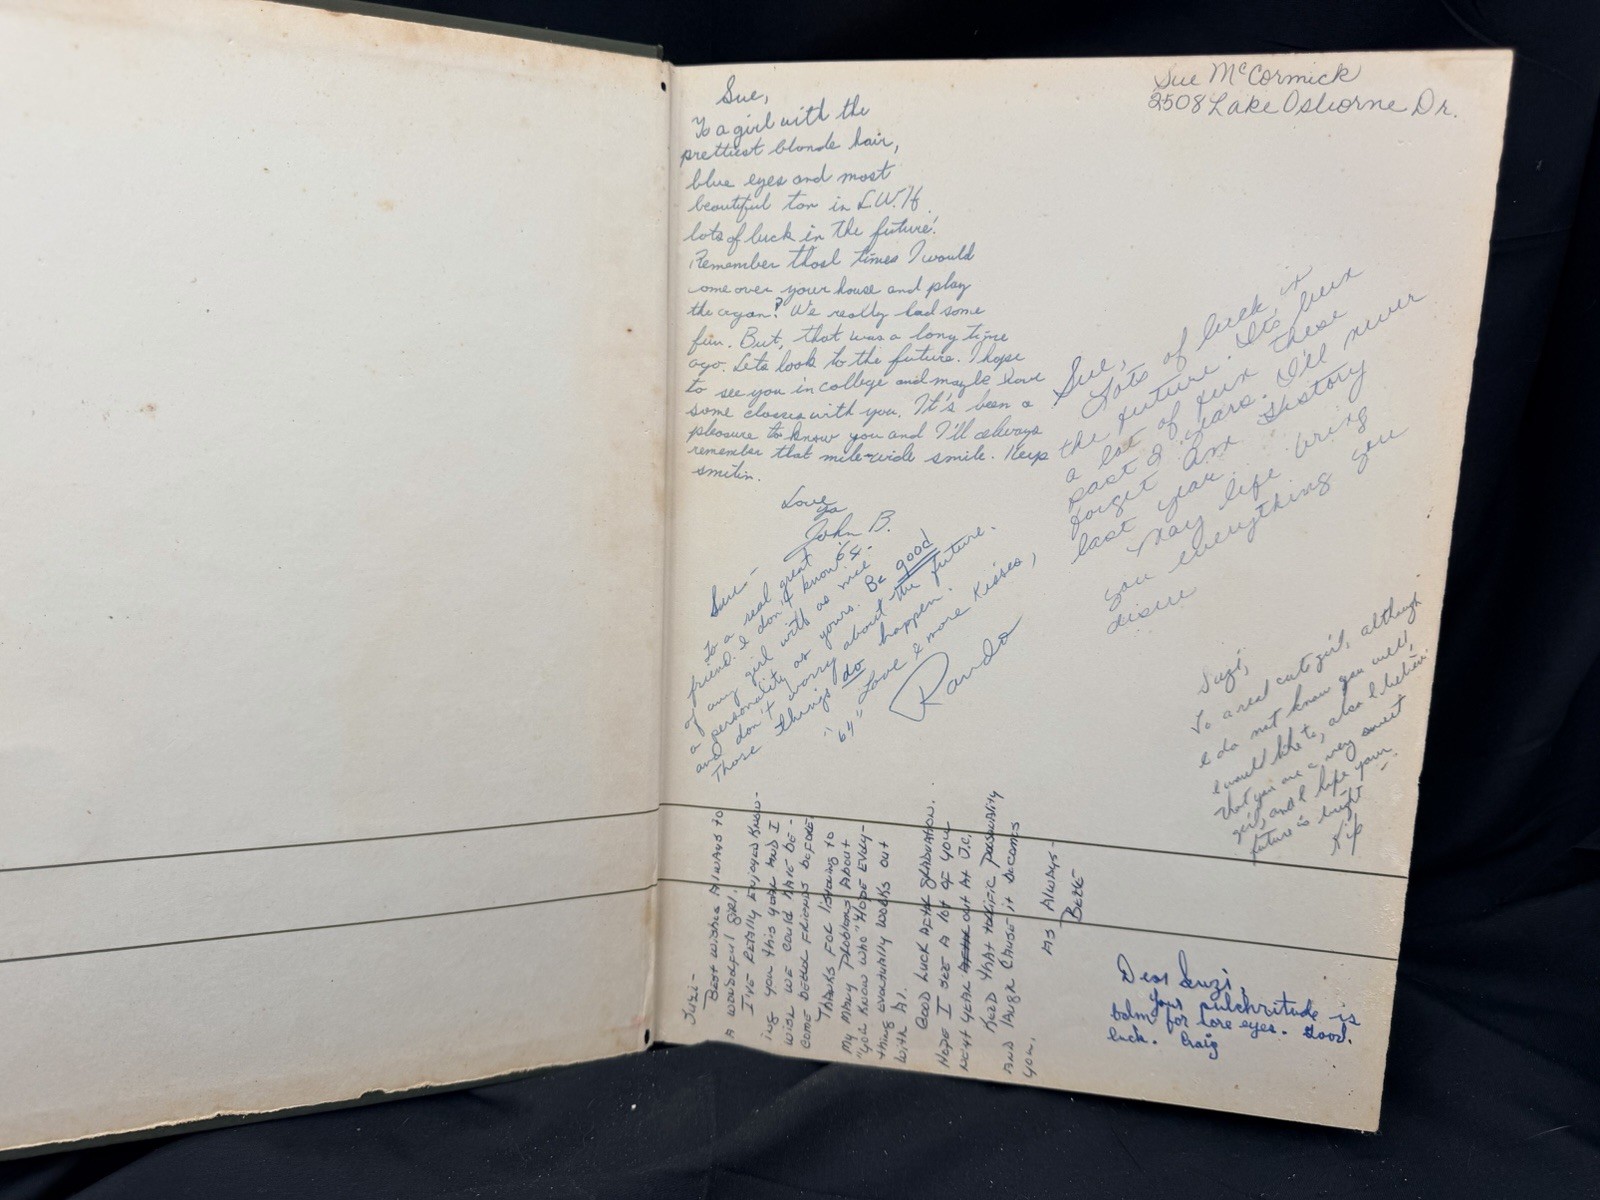 Sue McCormick
2508 Lake Osborne Dr.
Sue,
To a girl with the
prettiest blonde hair,
blue eyes and most
beautiful tan in L.W.H.
lots of luck in the future!
Remember those times I would
come over your house and play
the organ? We really had some
fun. But, that was a long time
ago. Lets look to the future. I hope
to see you in college and maybe have
some classes with you. It's been a
pleasure to know you and I'll always
remember that mile-wide smile. Keep
smilin.
Love
ya
John B.
'64
Sue,
Lots of luck in
the future. Its been
a lot of fun these
past 2 years. I'll never
forget Am History
last year.
May life bring
you everything you
Sue-
To a real great
friend. I don't know
of any girl with as nice
a personality as yours. Be good
and don't worry about the future.
Those things do happen.
"64" Love & more Kisses,
Rando
Suzi,
To a real cute girl, although
I do not know you well,
I would like to, also I believe
that you are a very sweet
girl, and I hope your
future is bright
Kip
Suzi-
Best wishes always to
a wonderful girl.
I've really enjoyed know-
ing you this year and I
wish we could have be-
come better friends before.
Thanks for listening to
my many problems about
"you know who" Hope every-
thing eventually works out
with Al.
Good luck after graduation.
Hope I see a lot of you
next year out at J.C.
Keep that terrific personality
and laugh cause it becomes
you.
As Always-
Dear Suzi,
Your pulchritude is
balm for sore eyes. Good
luck. Craig